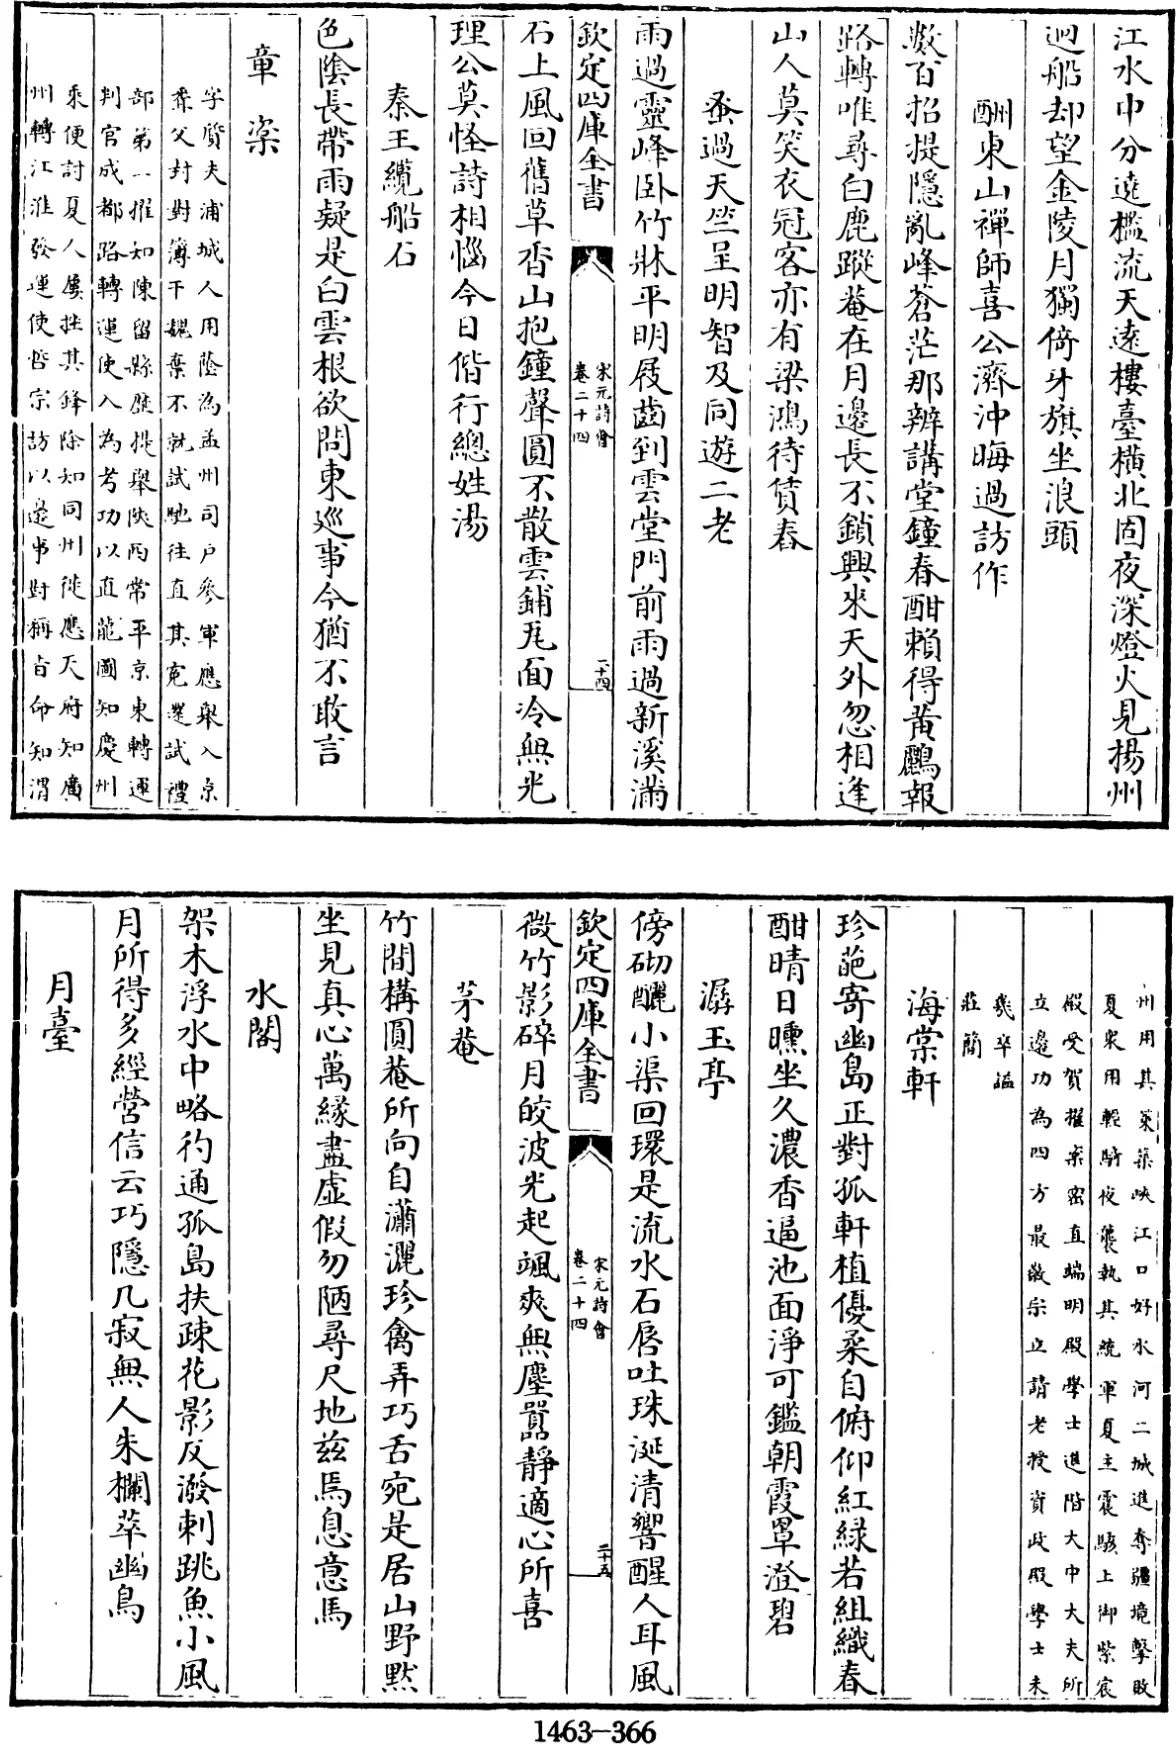 江水中分遶檻流天遠樓臺橫北固夜深燈火見揚州
迴船却望金陵月獨倚牙旗坐浪頭
酬東山禪師喜公濟沖晦過訪作
數百招提隱亂峰蒼茫那辨講堂鐘春酣賴得黃鸝報
路轉唯尋白鹿蹤菴在月邊長不鎖興來天外忽相逢
山人莫笑衣冠客亦有梁鴻待賃舂
蚤過天竺呈明智及同遊二老
雨過靈峰卧竹牀平明屐齒到雲堂門前雨過新溪滿
欽定四庫全書
宋元詩會
卷二十四
二十四
石上風回舊草香山抱鐘聲圓不散雲鋪瓦面冷無光
理公莫怪詩相惱今日偕行總姓湯
秦王纜船石
色陰長帶雨疑是白雲根欲問東巡事今猶不敢言
章楶
字質夫浦城人用蔭為孟州司户參軍應舉入京
聞父封對簿于魏棄不就試馳往直其寃還試禮
部第一擢知陳留縣歷提舉陝西常平京東轉運
判官成都路轉運使入為考功以直龍圖知慶州
乘便討夏人屢挫其鋒除知同州徙應天府知廣
州轉江淮發運使哲宗訪以邊事對稱旨命知渭
州用其策築峽江口好水河二城進奪疆境擊敗
夏衆用輕騎夜襲執其統軍夏主震駭上御紫宸
殿受賀擢樞密直端明殿學士進階大中大夫所
立邊功為四方最徽宗立請老授資政殿學士未
幾卒諡
莊簡
海棠軒
珍葩寄幽島正對孤軒植優柔自俯仰紅綠若組織春
酣晴日曛坐久濃香逼池面淨可鑑朝霞罩澄碧
潺玉亭
傍砌釃小渠回環是流水石唇吐珠涎清響醒人耳風
欽定四庫全書
宋元詩會
卷二十四
二十五
微竹影碎月皎波光起颯爽無塵囂靜適心所喜
茅菴
竹間構圓菴所向自瀟灑珍禽弄巧舌宛是居山野默
坐見真心萬緣盡虛假勿陋尋尺地兹焉息意馬
水閣
架木浮水中略彴通孤島扶疎花影反潑剌跳魚小風
月所得多經營信云巧隱几寂無人朱欄萃幽鳥
月臺
1463-366